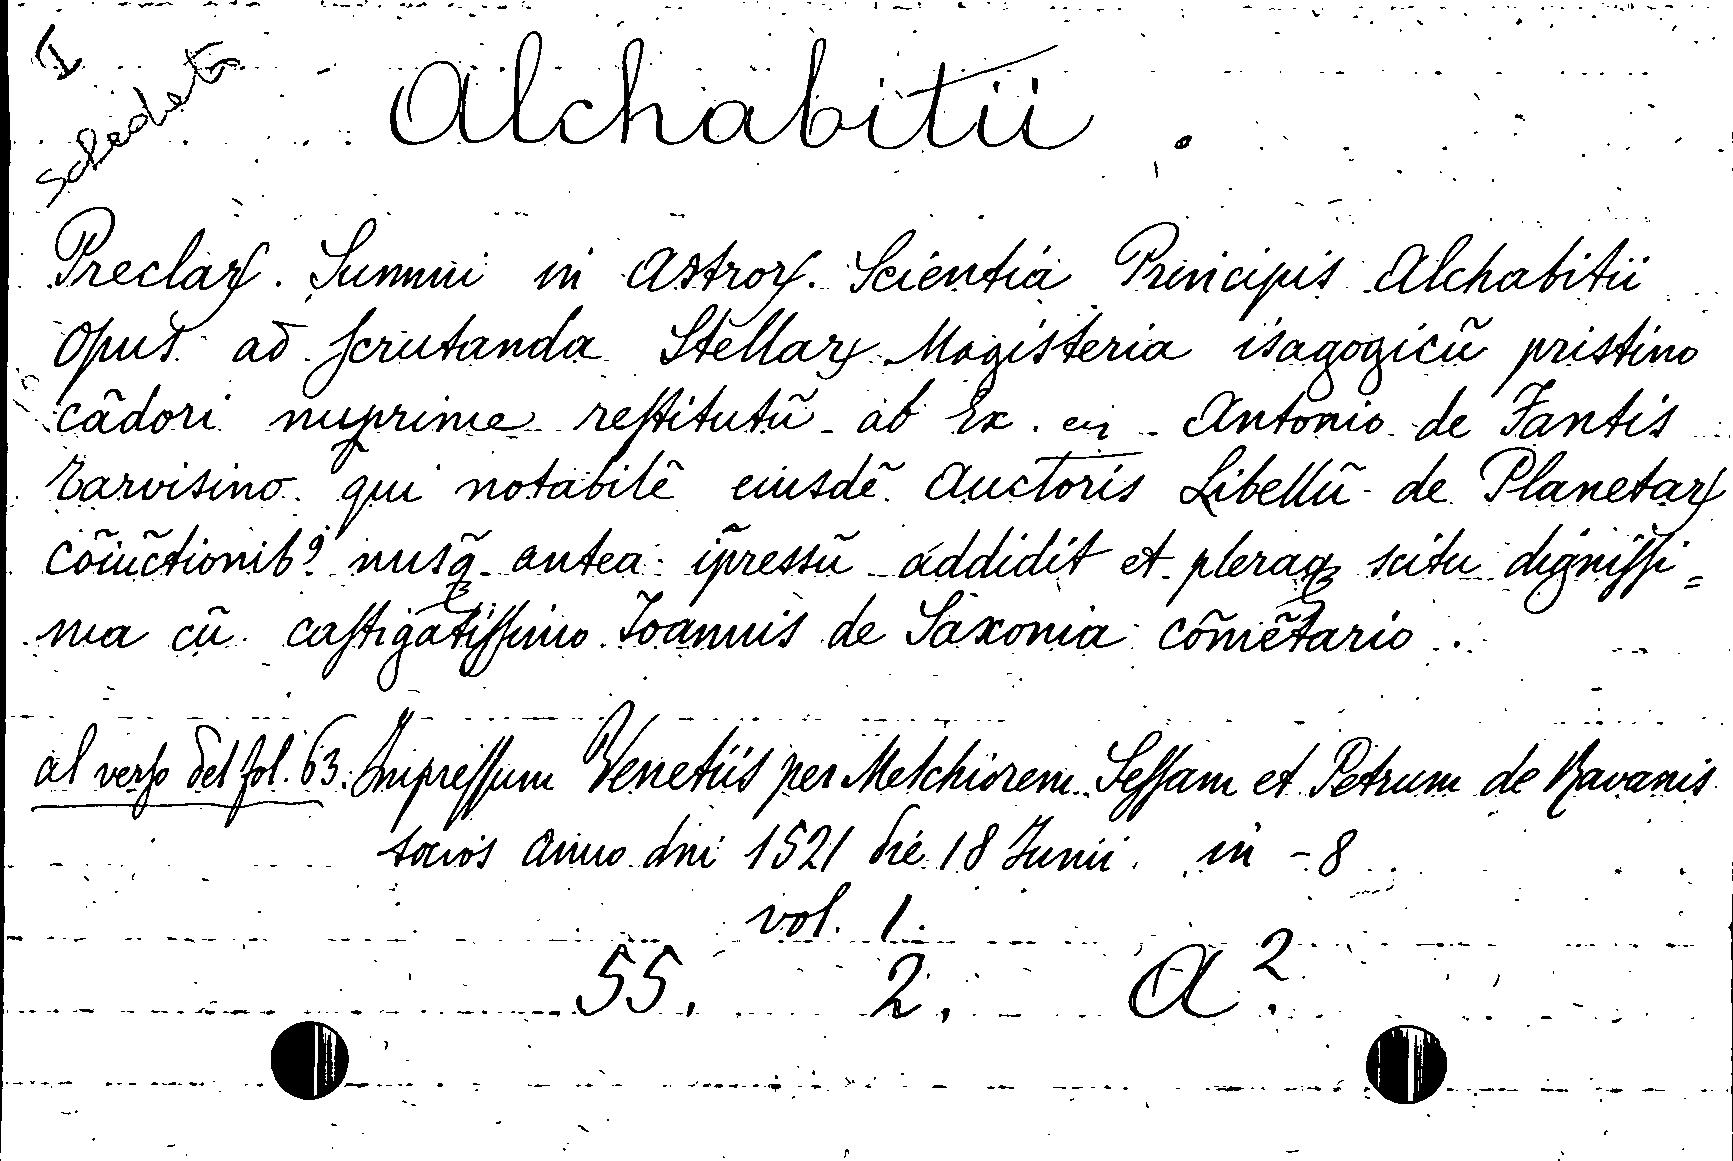 I
Schedato
Alchabitii.
Preclaꝝ. Summi in Astroꝝ. Scientia Principis Alchabitii
Opus ad scrutanda Stellaꝝ Magisteria isagogicũ pristino
cãdori nuꝑrime reſtitutũ ab Ex. Antonio de Fantis
tarvisino qui notabilẽ eiusdẽ auctoris Libellũ de Planetaꝝ
cõiũctionib9 nusq̃ antea ĩpressũ addidit et pleraqꝫ scitu digniſſi=
ma cũ caſtigatiſſimo Ioannis de Saxonia cõmẽtario.
al verſo del fol. 63. Impreſſum Venetiis per Melchiorem Seſſam et Petrum de Ravanis
socios anno dni 1521 die 18 Junii. in -8
vol. 1.
55. 2. A².